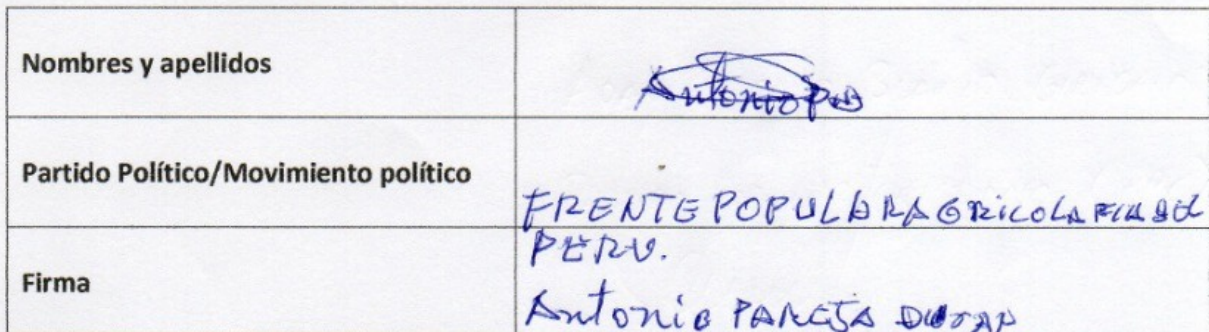 Nombres y apellidos
Antonio
Partido Político/Movimiento político
FRENTE POPULAR AGRICOLA FIA DEL
PERU.
Firma
Antonio PAREJA